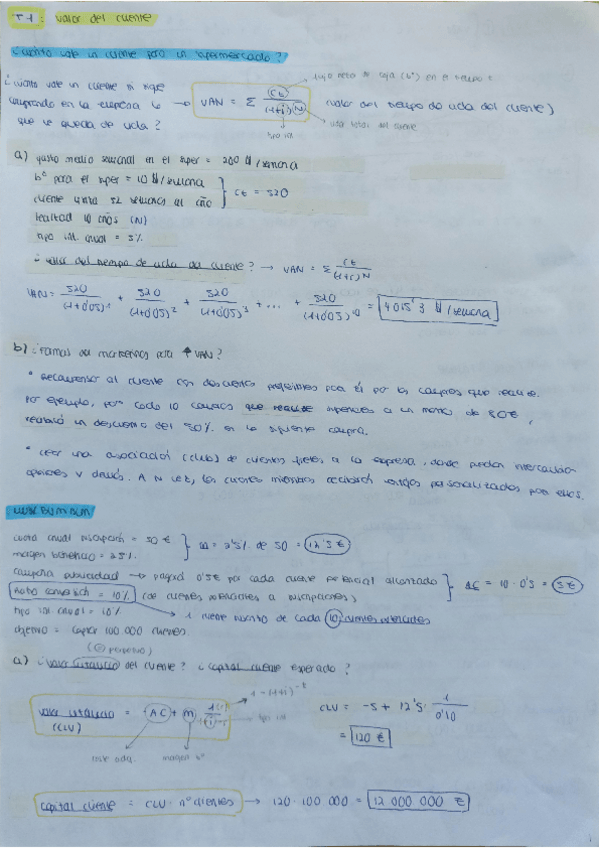 T1: Valor del cliente
¿Cuánto vale un cliente para un supermercado?
flujo neto de caja (bº) en el tiempo t
¿Cuánto vale un cliente si sigue
comprando en la empresa lo → VAN = Σ Ct / (1+i)^N (valor del tiempo de vida del cliente)
que le queda de vida?
vida total del cliente
tipo int
a) gasto medio semanal en el súper = 200 /semana
bº para el súper = 10 /semana
cliente visita 52 semanas al año } Ct = 520
lealtad 10 años (N)
tipo int. anual = 5%
¿valor del tiempo de vida del cliente? → VAN = Σ Ct / (1+i)^N
VAN = 520 / (1+0'05)^1 + 520 / (1+0'05)^2 + 520 / (1+0'05)^3 + ... + 520 / (1+0'05)^10 = 4015'3 /semana
b) ¿Formas de mantenerlos para ↑ VAN?
* Recompensar al cliente con descuentos preferibles para él por las compras que realice.
Por ejemplo, por cada 10 compras que realice superiores a un monto de 80€,
recibirá un descuento del 50% en la siguiente compra.
* Crear una asociación (club) de clientes fieles a la empresa, donde puedan intercambiar
opiniones y demás. A su vez, los clientes miembros recibirán ventajas personalizadas para ellos.
cuota anual suscripción = 50 €
margen beneficio = 25% } m = 25% de 50 = 12'5 €
campaña publicidad → pagará 0'5€ por cada cliente potencial alcanzado
ratio conversión = 10% (de clientes potenciales a suscriptores) } AC = 10 · 0'5 = 5€
tipo int anual = 10% 1 nuevo suscrito de cada 10 clientes potenciales
objetivo = captar 100.000 nuevos
a) ¿valor vitalicio del cliente? ¿capital cliente esperado?
1-(1+i)^-t
valor vitalicio (CLV) = -AC + m · tipo int
CLV = -5 + 12'5 · 1 / 0'10
= 120 €
coste adq. margen bº
capital cliente = CLV · nº clientes → 120 · 100 000 = 12 000 000 €